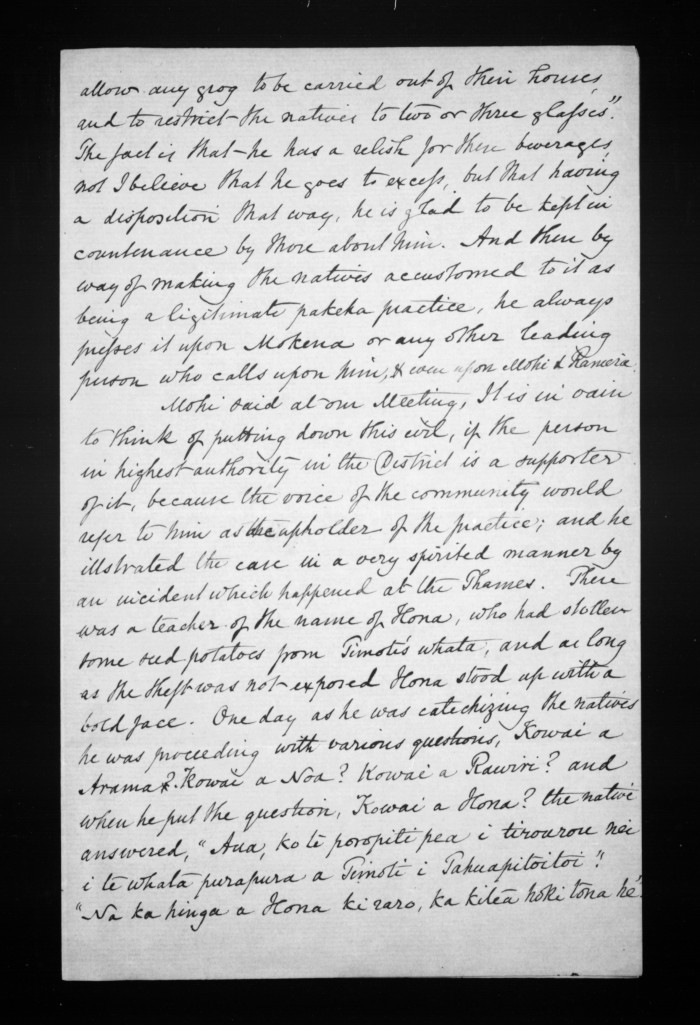 allow any grog to be carried out of their houses,
and to restrict the natives to two or three glasses".
The fact is that he has a relish for these beverages,
not I believe that he goes to excess, but that having
a disposition that way, he is glad to be kept in
countenance by those about him. And then by
way of making the natives accustomed to it as
being a legitimate pakeka practice, he always
presses it upon Mokena or any other leading
person who calls upon him, & even upon Mohi & Rameria.
Mohi said at our Meeting, It is in vain
to think of putting down this evil, if the person
in highest authority in the District is a supporter
of it, because the voice of the community would
refer to him as the upholder of the practice; and he
illstrated the case in a very spirited manner by
an incident which happened at the Thames. There
was a teacher of the name of Hona, who had stollen
some seed potatoes from Timoti's whata, and as long
as the theft was not exposed Hona stood up with a
bold face. One day as he was catechizing the natives
he was proceeding with various questions, Kowai a
Arama? Kowai a Noa? Kowai a Rawiri? and
when he put the question, Kowai a Hona? the native
answered, "Aua, ko te poropiti pea i tirourou nei
i te whata purapura a Timoti i Tahuapitoitoi".
"Na ka hinga a Hona ki raro, ka kitea hoki tona hé".